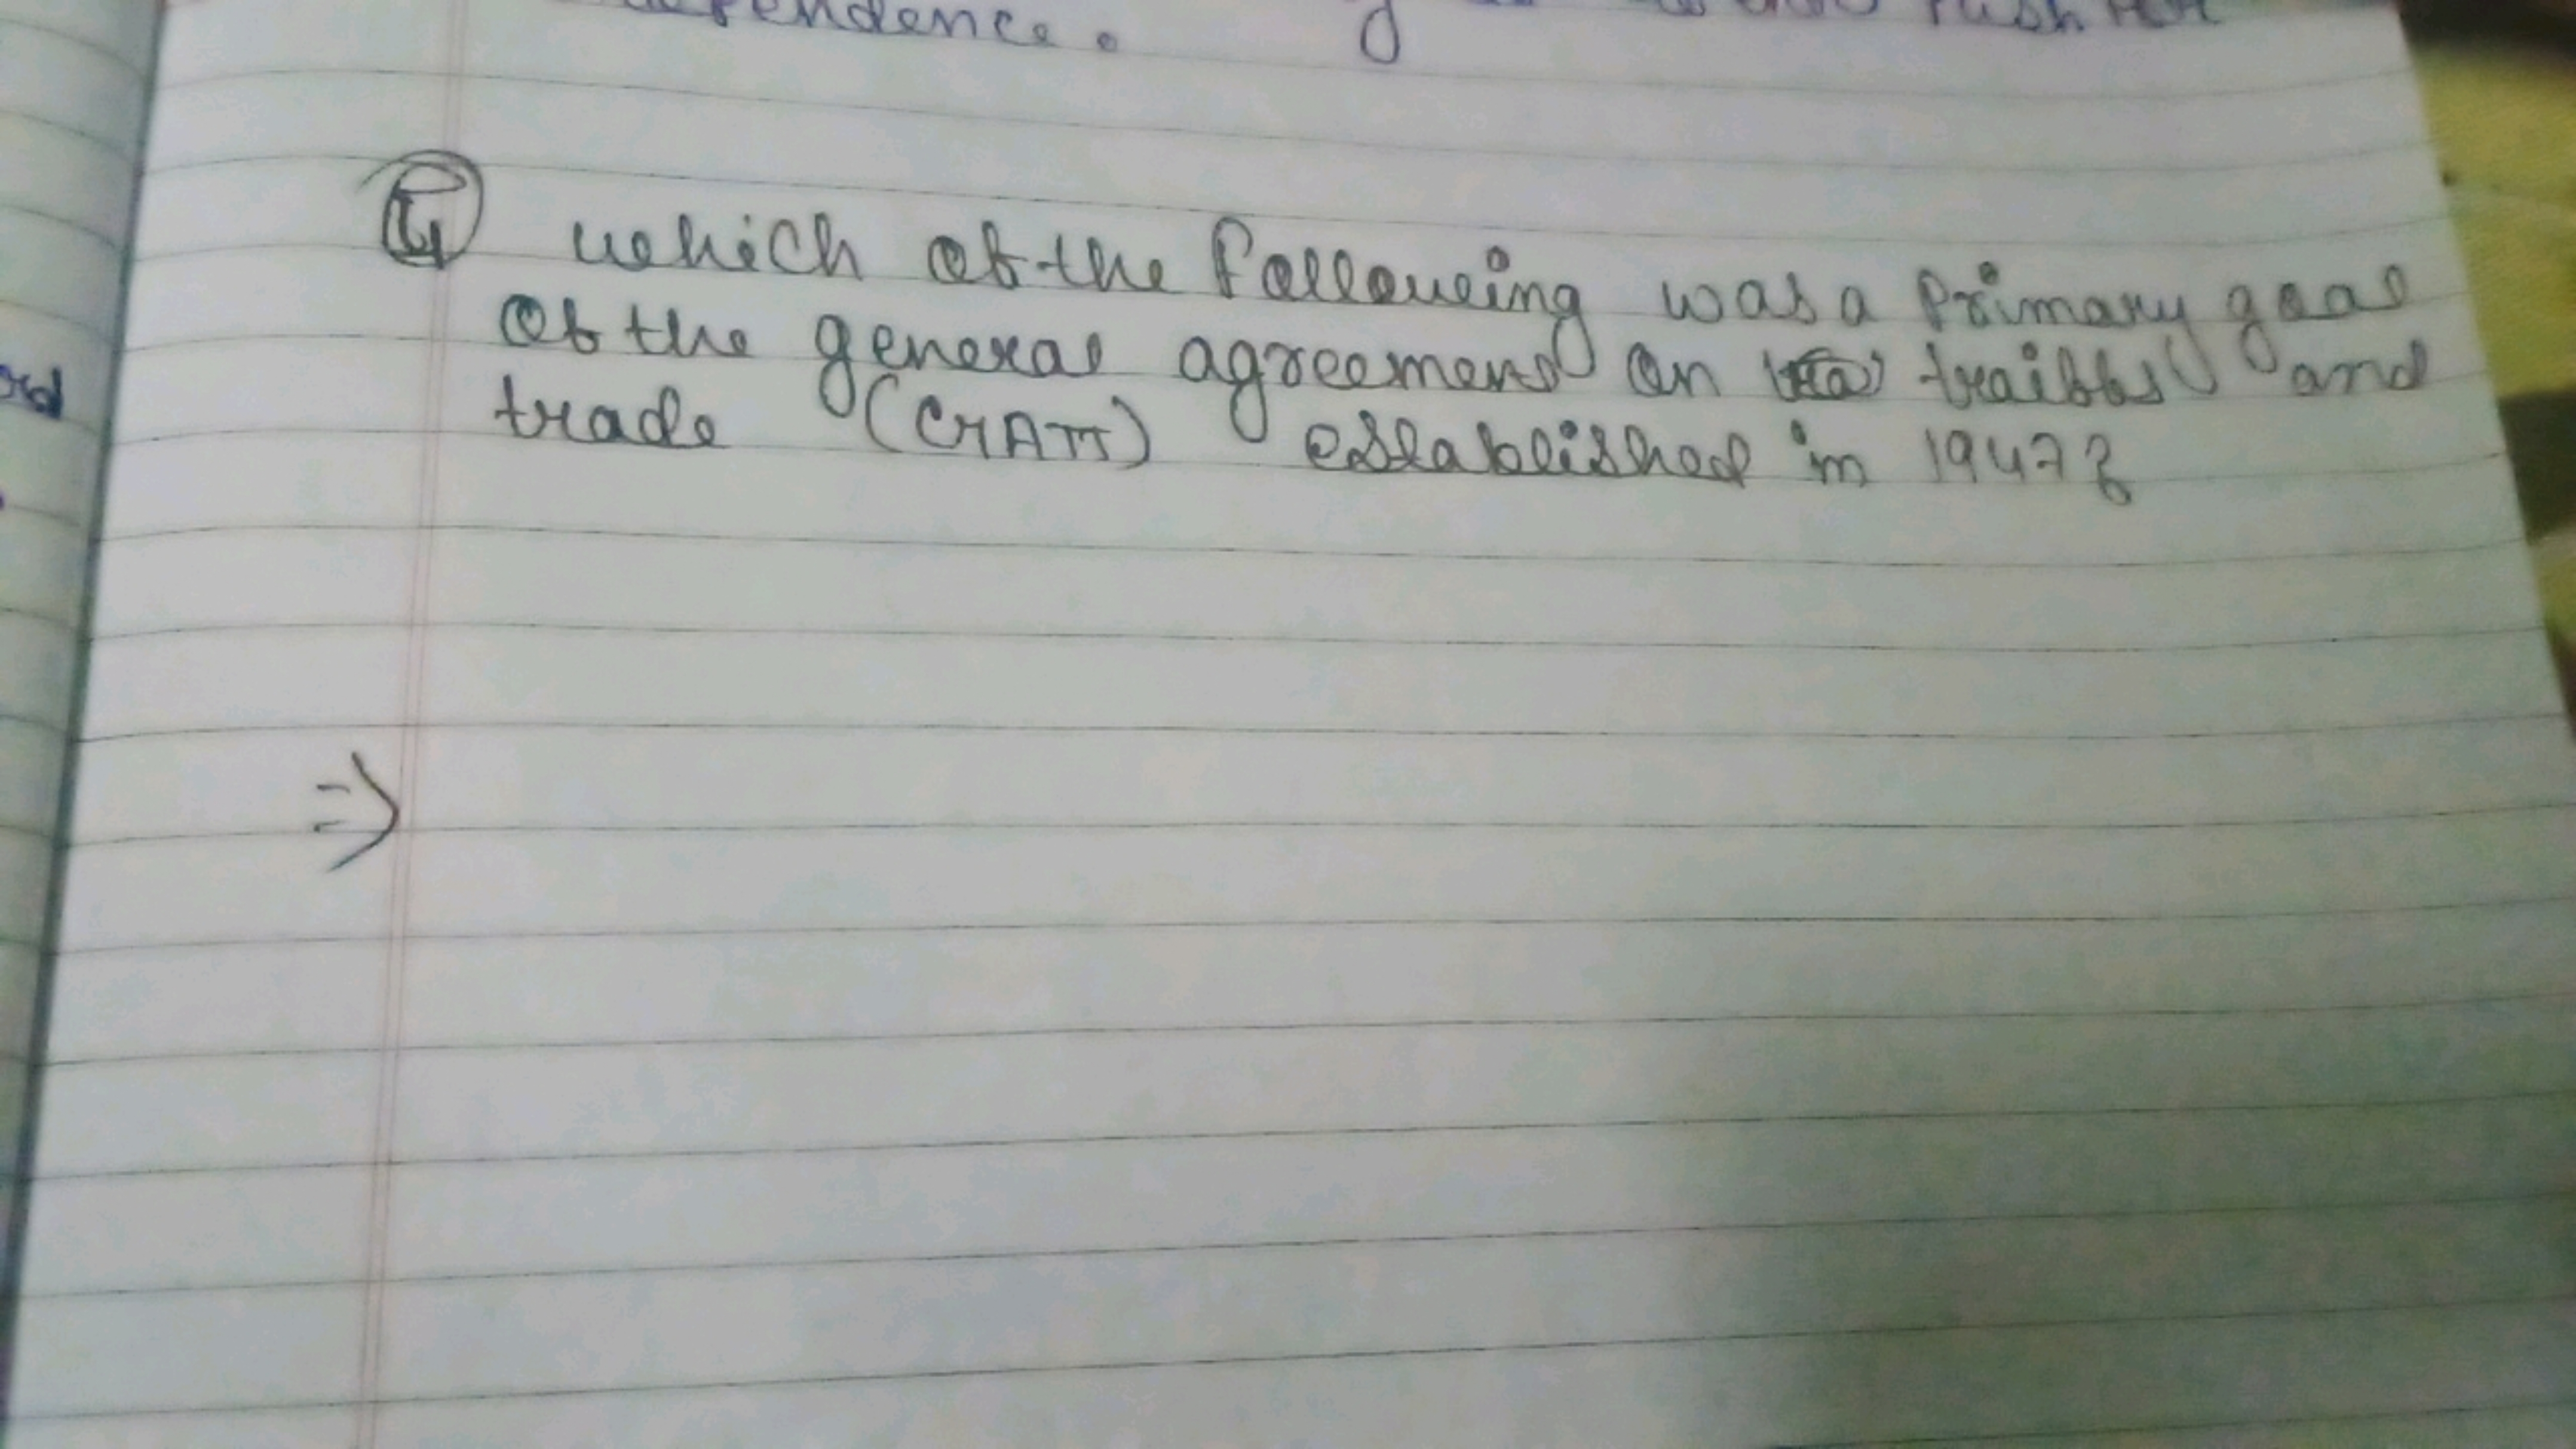 dependence.
④ which of the following was a primary goal
of the general agreement on traiffs and
trade (GATT) established in 1947?
⇒